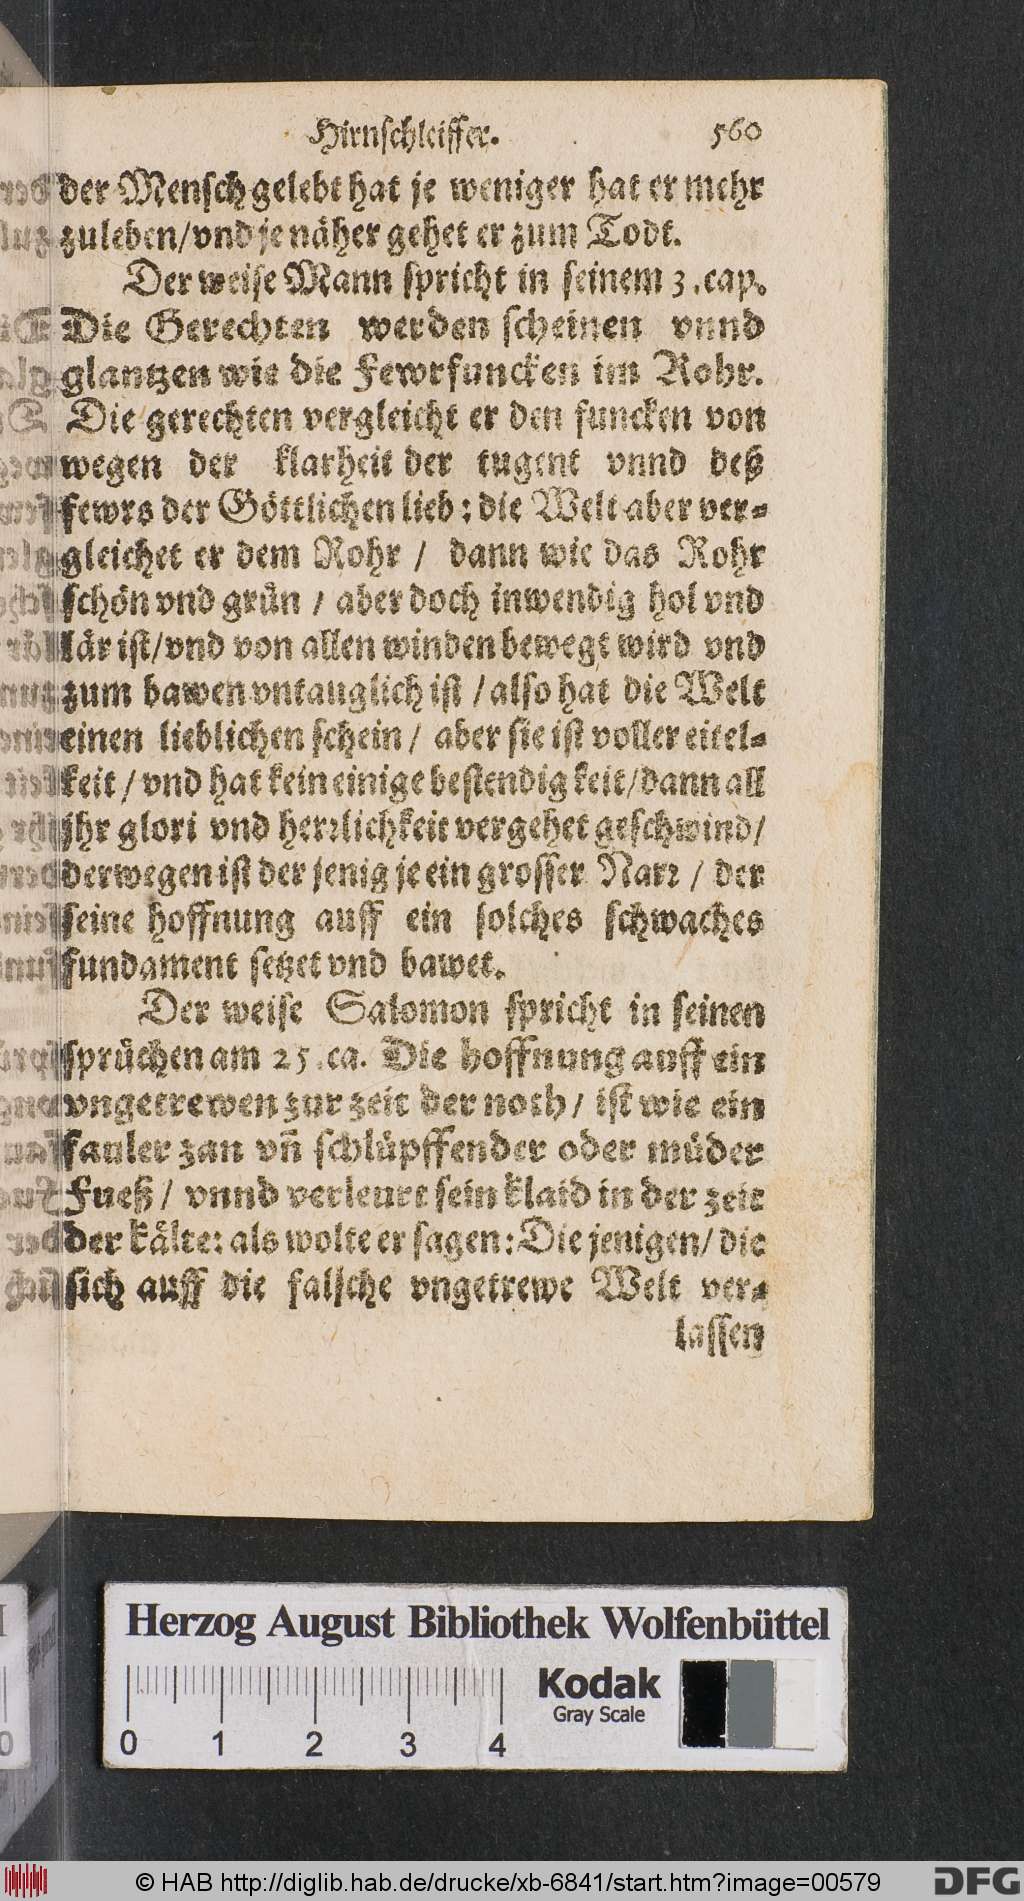 Hirnschleiffer. 560
der Mensch gelebt hat je weniger hat er mehr
zuleben/vnd je näher gehet er zum Todt.
Der weise Mann spricht in seinem 3.cap.
Die Gerechten werden scheinen vnnd
glantzen wie die Fewrfuncken im Rohr.
Die gerechten vergleicht er den funcken von
wegen der klarheit der tugent vnnd deß
fewrs der Göttlichen lieb: die Welt aber ver-
gleichet er dem Rohr / dann wie das Rohr
schön vnd grün / aber doch inwendig hol vnd
lär ist/vnd von allen winden bewegt wird vnd
zum bawen vntauglich ist / also hat die Welt
einen lieblichen schein / aber sie ist voller eitel-
keit / vnd hat kein einige bestendigkeit/dann all
jhr glori vnd herrlichkeit vergehet geschwind/
derwegen ist der jenig je ein grosser Narr / der
seine hoffnung auff ein solches schwaches
fundament setzet vnd bawet.
Der weise Salomon spricht in seinen
sprüchen am 25.ca. Die hoffnung auff ein
vngetrewen zur zeit der noth / ist wie ein
fauler zan vñ schlüpffender oder müder
Fueß / vnnd verleurt sein klaid in der zeit
der kälte: als wolte er sagen: Die jenigen/ die
sich auff die falsche vngetrewe Welt ver-
lassen
Herzog August Bibliothek Wolfenbüttel
Kodak
Gray Scale
0 1 2 3 4
© HAB http://diglib.hab.de/drucke/xb-6841/start.htm?image=00579
DFG